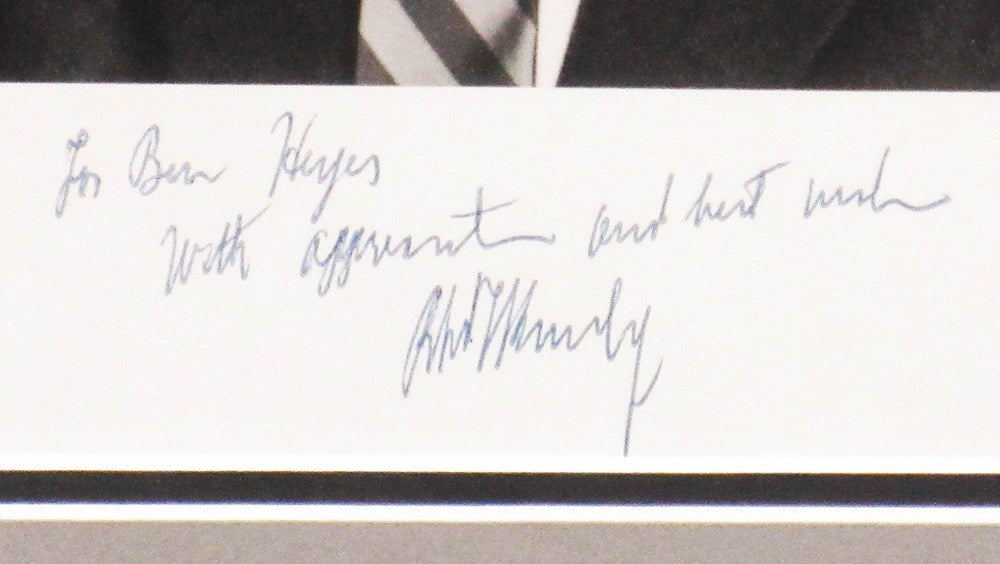 For Ben Heyes
With appreciation and best wishes
Robt F Kennedy